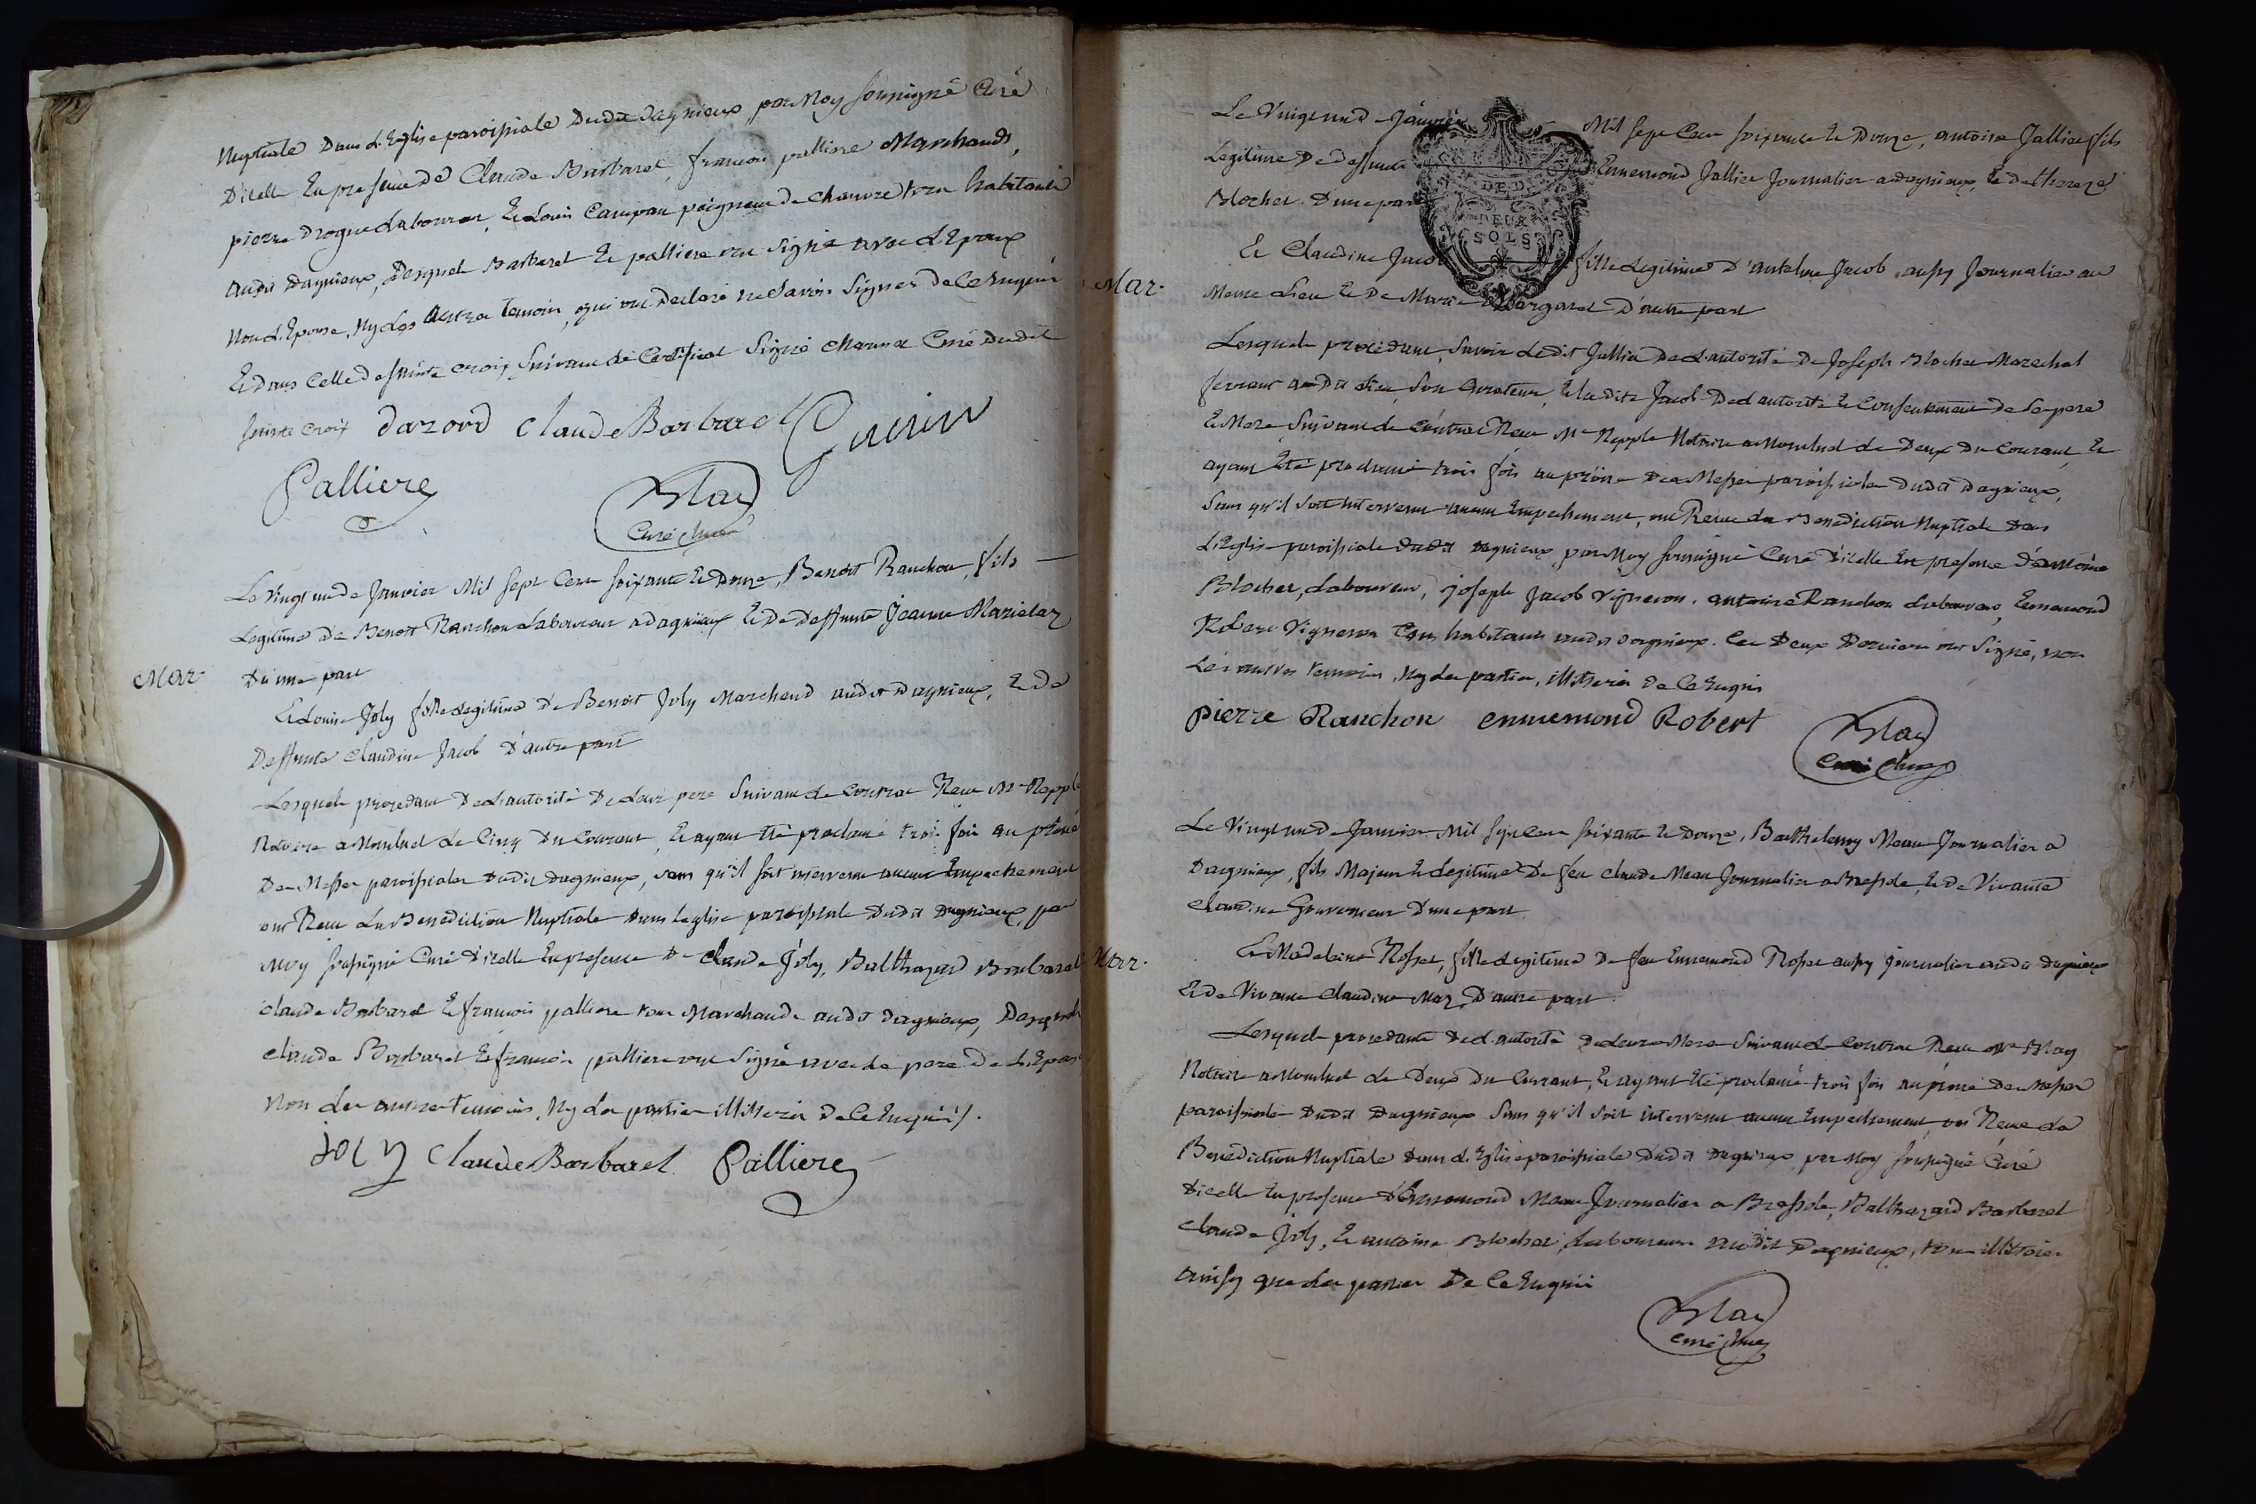 Nuptiale Dans L'Eglise paroissiale Dudit Dagnieux, par Moy soussigné Curé
D'icelle En presence de Claude Barbaret, francois palliere Marchands,
pierre Drogue Laboureur, Et Louis Campan peigneur de Chanvre tous habitants
audit Dagnieux, Desquels Barbaret Et palliere ont signé avec L'Epoux
Non L'Epouse, Ny Les autres temoins, qui ont Declaré ne savoir Signer de Ce Enquis
Et dans Celle de sainte croix suivant le Certificat Signé Curé Dudit
sainte croix Darord Claude Barbaret Guirin
Palliere
Blac
Curé
Le vingt un de Janvier Mil sept Cent soixante Et Douze, Benoit Ranchon, fils
Legitime De Benoit Ranchon Laboureur a dagnieux Et De Deffunte Jeanne
Mar.
D'une part
Et Louise Joly fille Legitime De Benoit Joly Marchand audit Dagnieux, Et de
Deffunte Claudine Jacob D'autre part
Lesquels procedant De L'autorité De Leur pere suivant Le Contrat Recu Me Nepple
Notaire a Montluel Le Cinq Du Courant, Et ayant Eté proclamé trois fois au prône
Des Messes paroissiales Dudit Dagnieux, sans qu'il soit intervenu aucun Empechement
ont Recu La Benediction Nuptiale dans L'eglise paroissiale Dudit Dagnieux, par
Moy soussigné Curé D'icelle En presence De Claude Joly, Balthazard Barbaret
Claude Barbaret Et francois palliere tous Marchands audit Dagnieux, Desquels
Claude Barbaret Et francois palliere ont signé avec Le pere De L'Epouse
Non Les autres temoins, Ny Les parties illiterés De Ce Enquis.
joly Claude Barbaret Palliere
Le Vingt un de Janvier Mil sept Cent soixante Et Douze, antoine Jallier fils
Legitime De deffunt Ennemond Jallier Journalier a dagnieux, Et de therese
Blochet D'une part
DEUX
SOLS
Mar.
Et Claudine Jacob fille Legitime D'antelme Jacob aussy Journalier au
Meme Lieu Et De Marie Margaret D'autre part
Lesquels procedant, savoir Ledit Jallier De L'autorité De Joseph Blochet Marechal
ferrant audit Lieu, son Curateur, Et La dite Jacob De L'autorité Et Consentement de Ses pere
Et Mere suivant Le Contrat Recu Me Nepple Notaire a Montluel Le Deux Du Courant, Et
ayant Eté proclamé trois fois au prône Des Messes paroissiales Dudit Dagnieux,
sans qu'il soit intervenu aucun Empechement, ont Recu La Benediction Nuptiale Dans
L'Eglise paroissiale Dudit Dagnieux par Moy soussigné Curé D'icelle En presence d'antoine
Blochet, Laboureur, joseph Jacob Vigneron, antoine Ranchon Laboureur, Ennemond
Robert Vigneron tous habitants audit Dagnieux. Les Deux Derniers ont Signé, non
Les autres temoins, Ny Les parties, illiterés De Ce Enquis
pierre Ranchon ennemond Robert
Blac
Curé
Le Vingt un de Janvier Mil sept Cent soixante Et Douze, Barthelemy Meau Journalier a
Dagnieux, fils Majeur Et Legitime De feu Claude Meau Journalier a Bressole Et De Vivante
Claudine D'une part
Mar.
Et Madeleine Rosset, fille Legitime De feu Ennemond Rosset aussy journalier audit Dagnieux
Et De Vivante Claudine D'autre part
Lesquels procedants De L'autorité De Leurs Meres suivant Le Contrat Recu Me Blay
Notaire a Montluel Le Deux Du Courant, Et ayant Eté proclamé trois fois au prône Des Messes
paroissiales Dudit Dagnieux sans qu'il soit intervenu aucun Empechement, ont Recu La
Benediction Nuptiale Dans L'Eglise paroissiale Dudit Dagnieux par Moy soussigné Curé
D'icelle En presence D'Ennemond Meau Journalier a Bressole, Balthazard Barbaret
Claude Joly, Et antoine Blochet, Laboureurs audit Dagnieux, tous illiterés
ainsy que Les parties De Ce Enquis
Blac
Curé